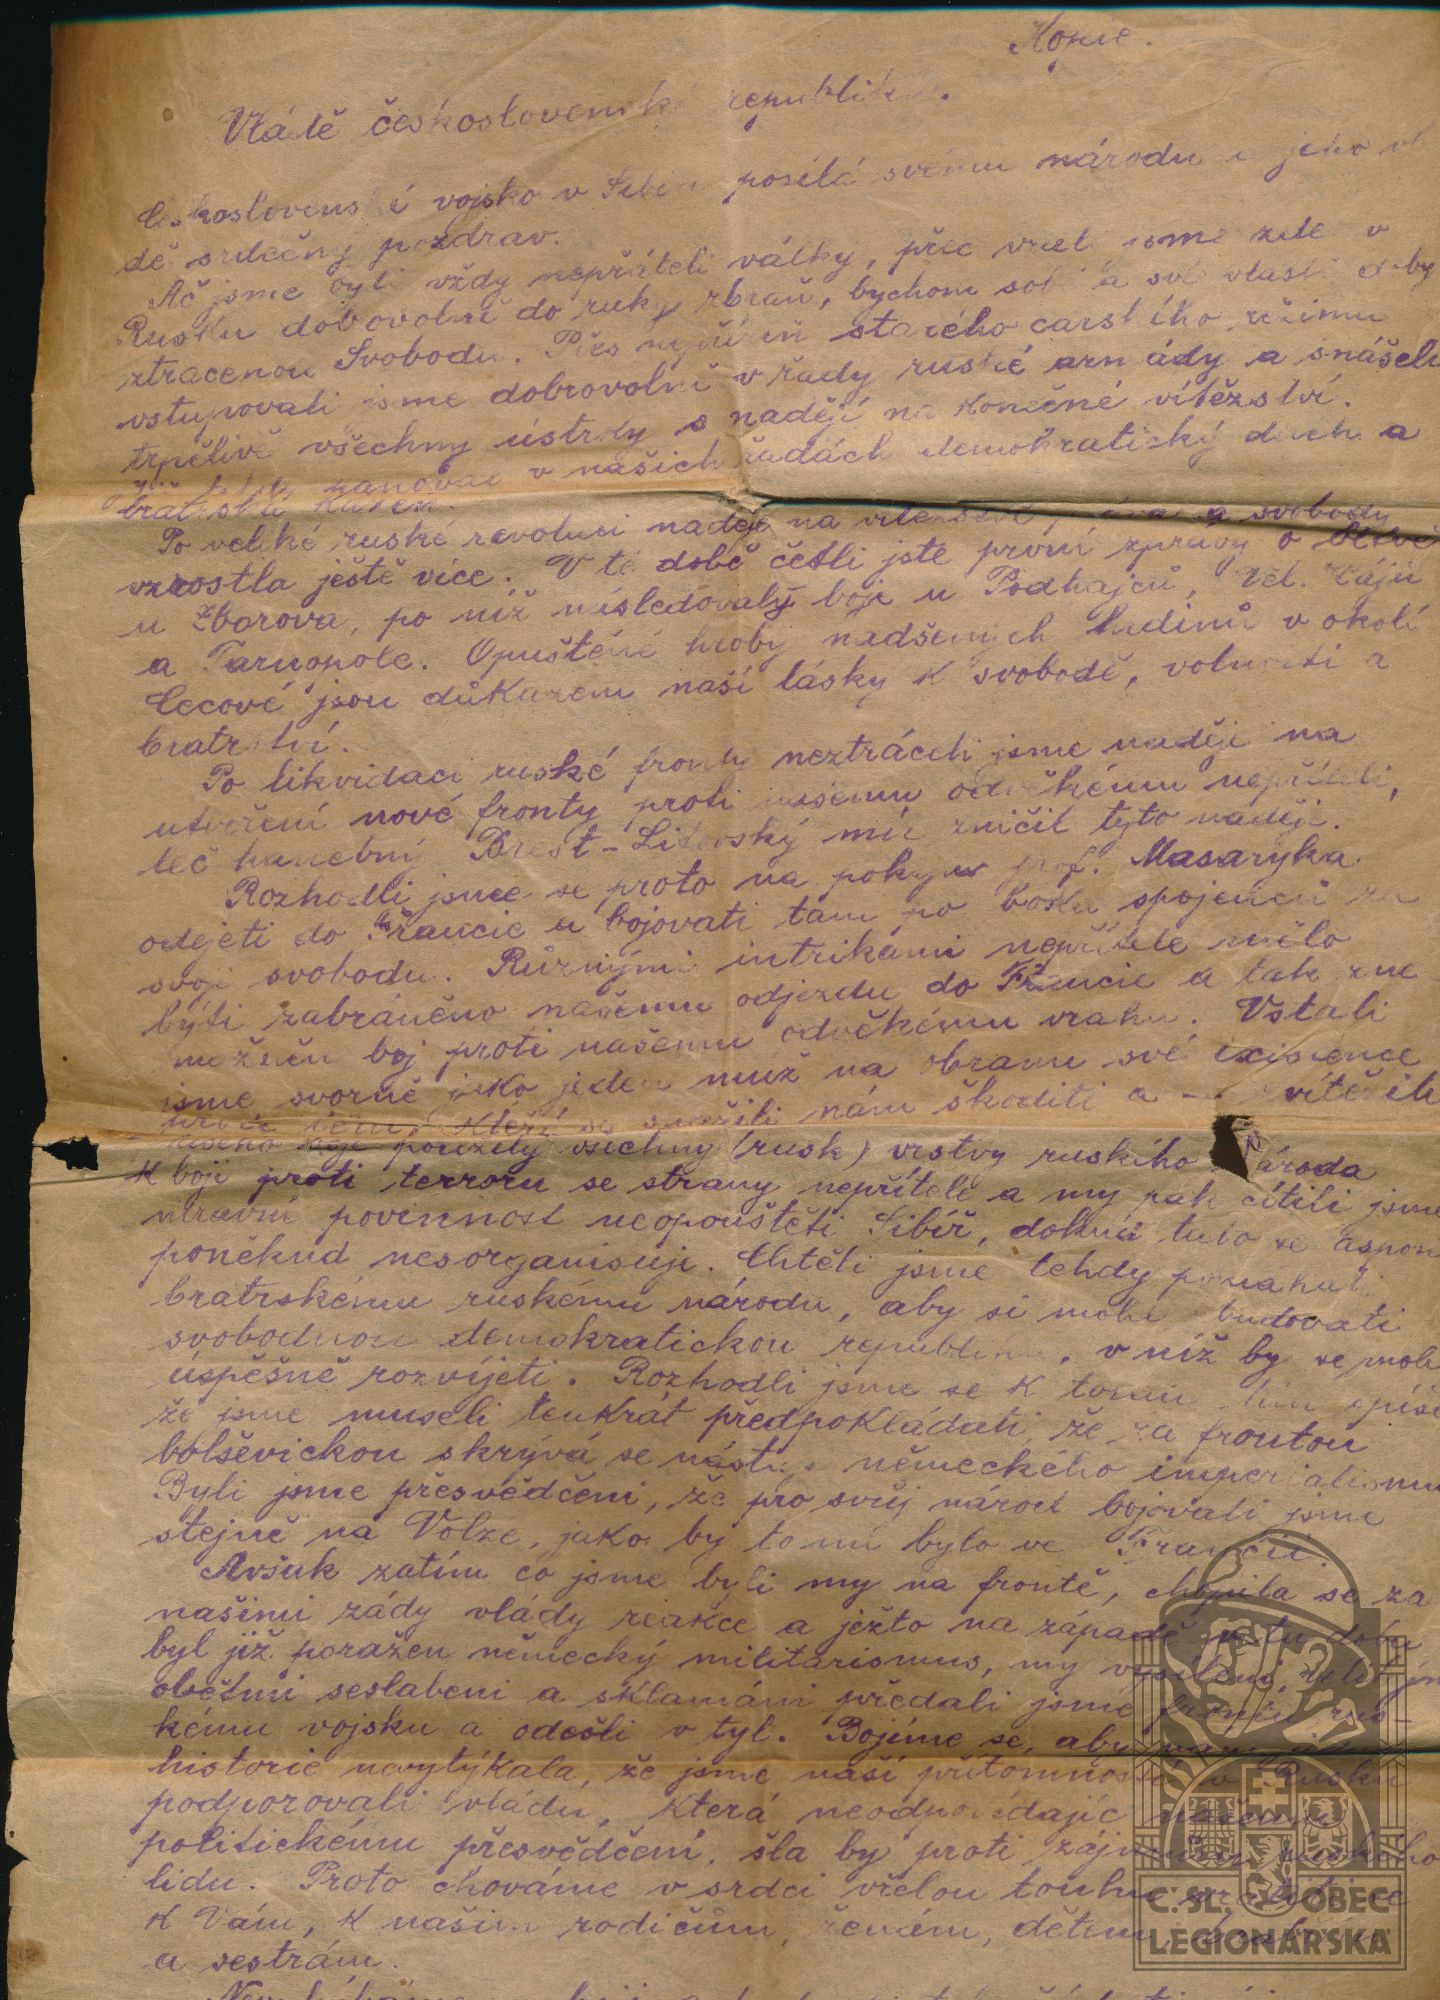 Kopie.
Vládě československé republiky.
Československé vojsko v Sibiři posílá svému národu a jeho vlá
dě srdečný pozdrav.
Ač jsme byli vždy nepřáteli války, přec vzeli jsme zde v
Rusku dobrovolně do ruky zbraň, bychom sobě a své vlasti dobyli
ztracenou Svobodu. Přes nepřízeň starého carského režimu
vstupovali jsme dobrovolně v řady ruské armády a snášeli
trpělivě všechny ústrky s nadějí na konečné vítězství.
Již tehdy panoval v našich řadách demokratický duch a
bratrská kázeň.
Po veliké ruské revoluci naděje na vítězství práva a svobody
vzrostla ještě více. V té době četli jste první zprávy o bitvě
u Zborova, po níž následovaly boje u Podhajců, Vel. Hájů
a Tarnopole. Opuštěné hroby nadšených hrdinů v okolí
Cecové jsou důkazem naší lásky k svobodě, volnosti a
bratrství.
Po likvidaci ruské fronty neztráceli jsme naději na
utvoření nové fronty proti našemu odvěkému nepříteli,
leč hanebný Brest-Litevský mír zničil tyto naděje.
Rozhodli jsme se proto na pokyn prof. Masaryka
odejeti do Francie a bojovati tam po boku spojenců za
svoji svobodu. Různými intrikami nepřítele mělo
býti zabráněno našemu odjezdu do Francie a tak zne-
možněn boj proti našemu odvěkému vrahu. Vstali
jsme svorně jako jeden muž na obranu své existence
proti těm, kteří se snažili nám škoditi a — zvítězili
použily všechny (rusk) vrstvy ruského národa
k boji proti terroru se strany nepřítele a my pak cítili jsme
mravní povinnost neopouštěti Sibiř, dokud tato se aspoň
poněkud nesorganisuje. Chtěli jsme tehdy pomáhati
bratrskému ruskému národu, aby si mohl budovati
svobodnou demokratickou republiku, v níž by se mohl
úspěšně rozvíjeti. Rozhodli jsme se k tomu tím spíše
že jsme museli tenkrát předpokládati, že za frontou
bolševickou skrývá se nástup německého imperialismu
Byli jsme přesvědčeni, že pro svůj národ bojovali jsme
stejně na Volze, jako by tomu bylo ve Francii.
Avšak zatím co jsme byli my na frontě, chopila se za
našimi zády vlády reakce a ježto na západě v tu dobu
byl již poražen německý militarismus, my vysíleni, velikými
obětmi seslabeni a sklamáni předali jsme frontu rus-
kému vojsku a odešli v tyl. Bojíme se, aby nám
historie nevytýkala, že jsme naší přítomností v Rusku
podporovali vládu, která neodpovídajíc našemu
politickému přesvědčení, šla by proti zájmům ruského
lidu. Proto chováme v srdci vřelou touhu vrátiti se
k Vám, k našim rodičům, ženám, dětem, bratřím
a sestrám.
Č. SL. OBEC
LEGIONÁŘSKÁ